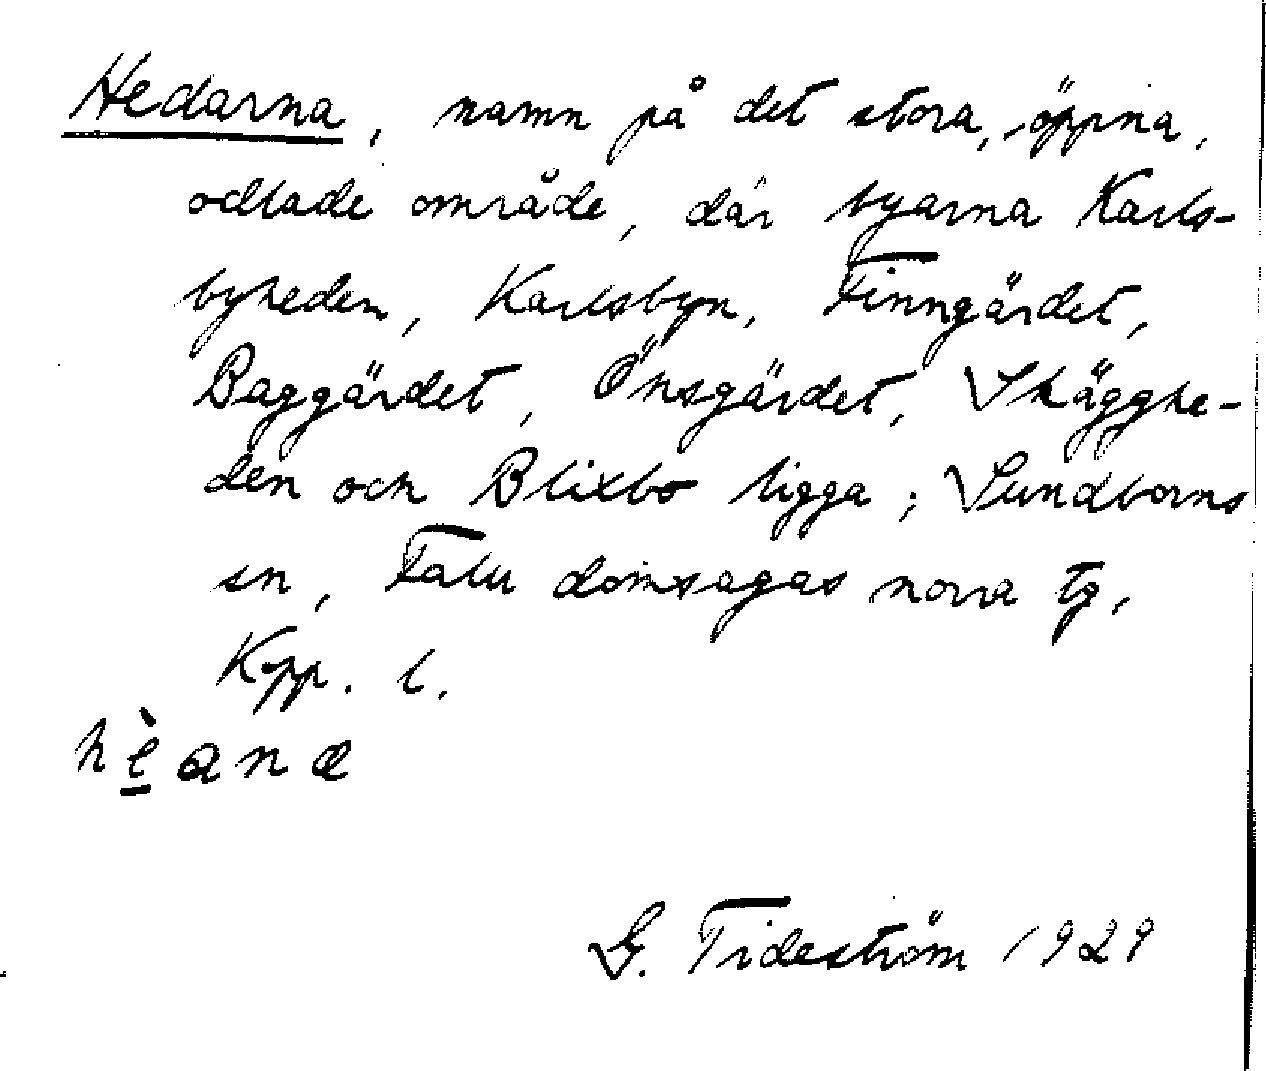 Hedarna, namn på det stora, öppna,
odlade område, där byarna Karls-
byheden, Karlsbyn, Finngärdet,
Baggärdet, Önsgärdet, Skägghe-
den och Blixbo ligga; Sundborns
sn, Falu domsagas norra tg,
Kopp. l.
hèana
G. Tideström 1929